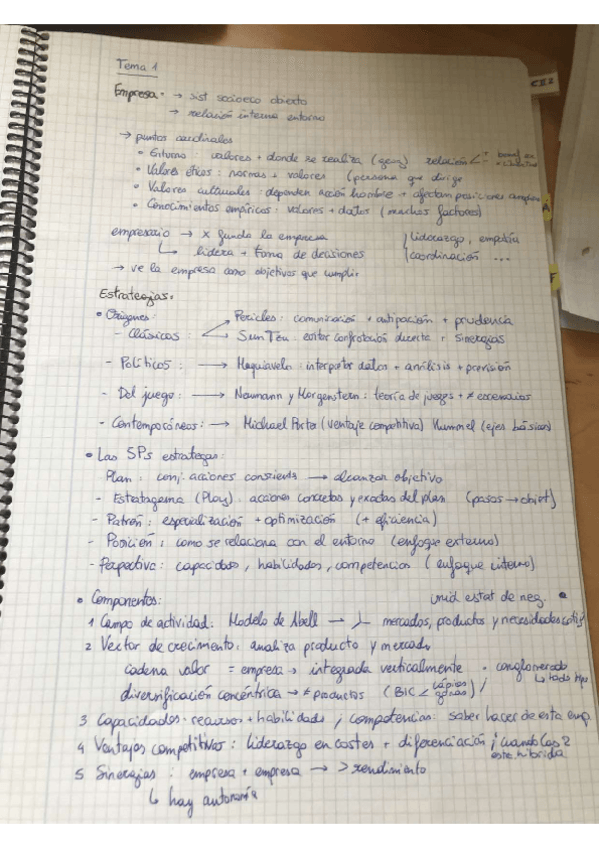 Tema 1
CE2
Empresa: → sist socioeco abierto
→ relación interna entorno
→ puntos cardinales
• Entorno: valores + donde se realiza (geog) relación
• Valores éticos: normas + valores (persona que dirige
• Valores culturales: dependen acción hombre + afectan posiciones
• Conocimientos empíricos: valores + datos (muchos factores)
empresario → x funda la empresa (liderazgo, empatía
↳ lidera + toma de decisiones coordinación ...
→ ve la empresa como objetivos que cumplir
Estrategias:
• Orígenes: Pericles: comunicación + anticipación + prudencia
- Clásicos: Sun Tzu: evitar confrontación directa + sinergias
- Políticos: → Maquiavelo: interpretar datos + análisis + previsión
- Del juego: → Neumann y Morgenstern: teoría de juegos + ≠ escenarios
- Contemporáneos: → Michael Porter (ventaja competitiva) Hummel (ejes básicos)
• Las 5Ps estrategas:
Plan: conj. acciones consciente → alcanzar objetivo
- Estratagema (Play): acciones concretas y exactas del plan (pasos → objet)
- Patrón: especialización + optimización (+ eficiencia)
- Posición: como se relaciona con el entorno (enfoque externo)
- Perspectiva: capacidades, habilidades, competencias (enfoque interno)
• Componentes: unid estrat de neg.
1 Campo de actividad: Modelo de Abell → mercados, productos y necesidades
2 Vector de crecimiento: analiza producto y mercado
cadena valor = empresa → integrada verticalmente • conglomerado
↳ todo tipo
diversificación concéntrica → ≠ productos (BIC < lápices
3 Capacidades: recursos + habilidades / competencias: saber hacer de esta emp
4 Ventajas competitivas: liderazgo en costes + diferenciación ¡cuando las 2
este híbrida
5 Sinergias: empresa + empresa → > rendimiento
↳ hay autonomía